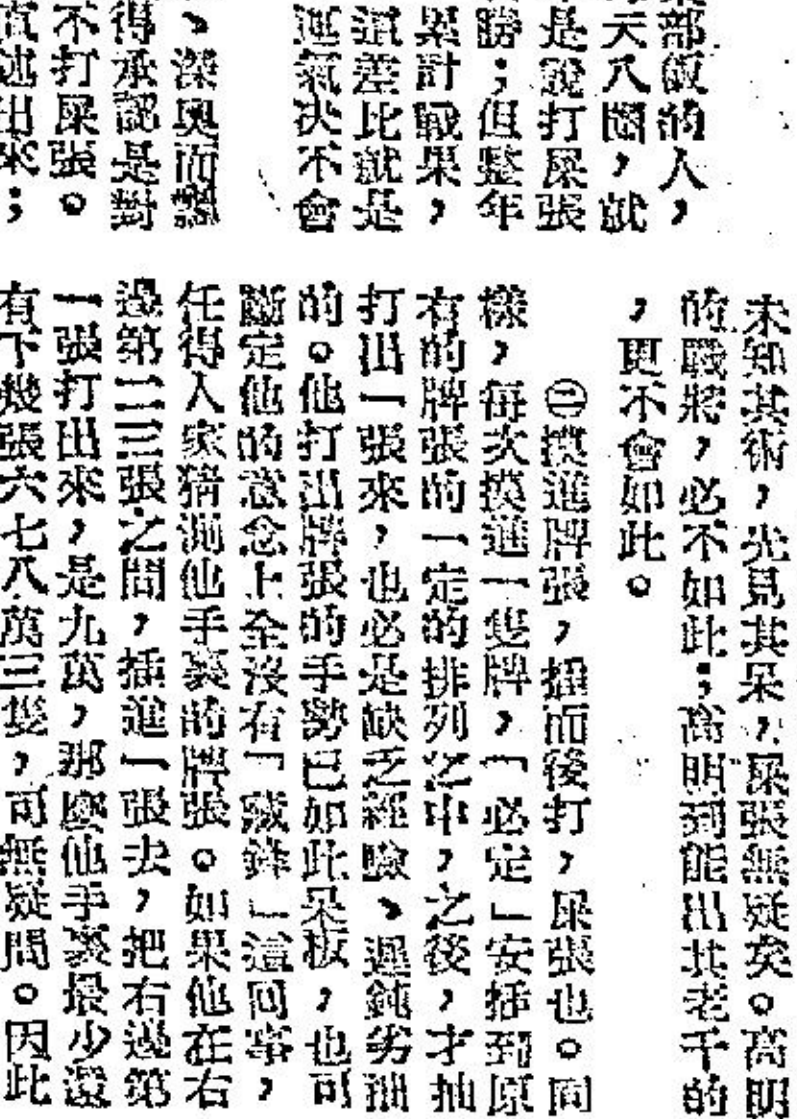 部飯的人，
天八圈，就
是說打屎張
勝；但整年
累計戰果，
這差比就是
運氣决不會
、深奧而
得承認是對
不打屎張。
直述出來；
未知其術，先見其呆，屎張無疑矣。高明
的戰將，必不如此；高明到能出其老千的
，更不會如此。
㊁摸進牌張，插而後打，屎張也。同
樣，每次摸進一隻牌，「必定」安插到原
有的牌張的一定的排列之中，之後，才抽
打出一張來，也必是缺乏經驗、遲鈍劣拙
的。他打出牌張的手勢已如此呆板，也可
斷定他的意念上全沒有「藏鋒」這回事，
任得人家猜測他手裏的牌張。如果他在右
邊第二三張之間，插進一張去，把右邊第
一張打出來，是九萬，那麼他手裏最少還
有下幾張六七八萬三隻，可無疑問。因此